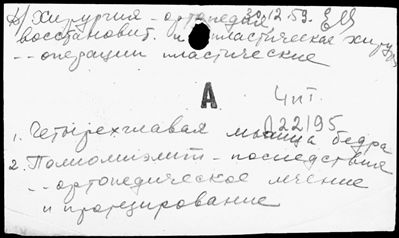 в/ Хирургия - ортопедия 30.12.59. ЕМ
восстановит. и пластическая хирург
-- операции пластические
А
Чит.
1. Четырехглавая мышца бедра
А22195
2. Полиомиэлит - последствия
-- ортопедическое лечение
и протезирование